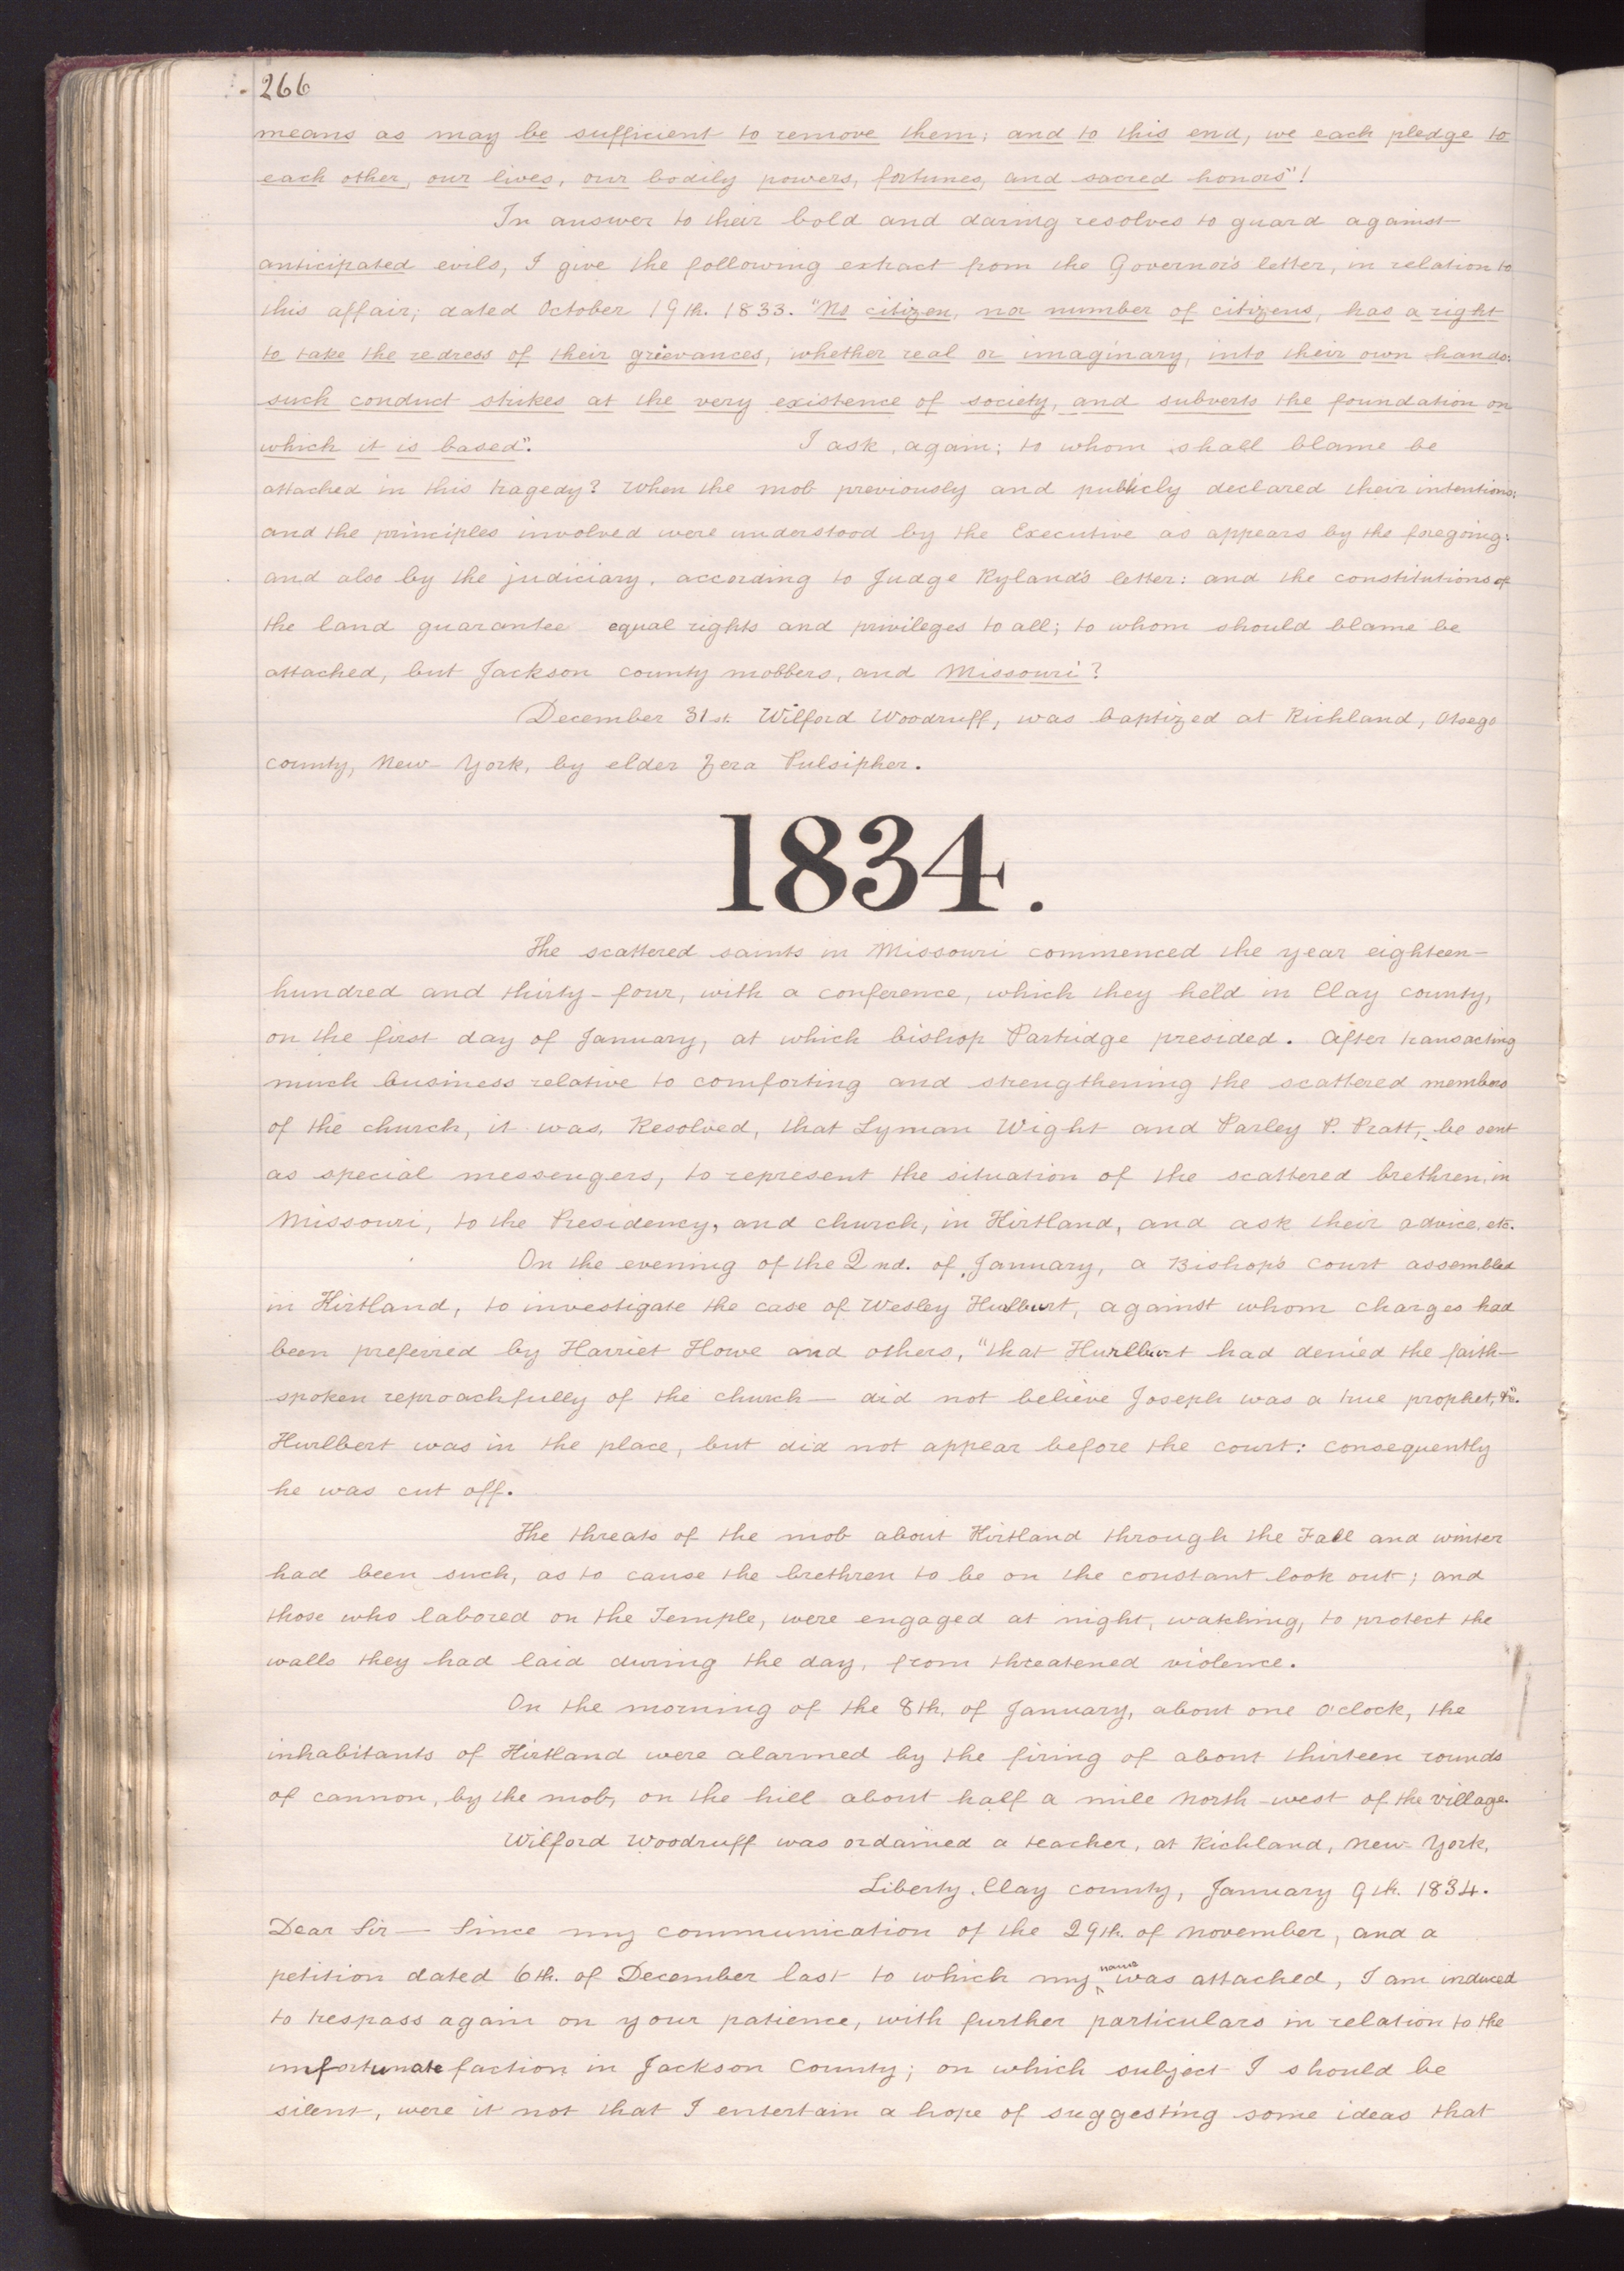 266
means as may be sufficient to remove them; and to this end, we each pledge to
each other, our lives, our bodily powers, fortunes, and sacred honors"!
In answer to their bold and daring resolves to guard against
anticipated evils, I give the following extract from the Governor's letter, in relation to
this affair; dated October 19th. 1833. "No citizen, nor number of citizens, has a right
to take the redress of their grievances, whether real or imaginary, into their own hands:
such conduct strikes at the very existence of society, and subverts the foundation on
which it is based". I ask, again; to whom shall blame be
attached in this tragedy? When the mob previously and publicly declared their intentions;
and the principles involved were understood by the Executive as appears by the foregoing:
and also by the judiciary, according to Judge Ryland's letter: and the constitutions of
the land guarantee equal rights and privileges to all; to whom should blame be
attached, but Jackson county mobbers, and Missouri?
December 31st. Wilford Woodruff, was baptized at Richland, Otsego
county, New-York, by elder Zera Pulsipher.
1834.
The scattered saints in Missouri commenced the year eighteen-
hundred and thirty-four, with a conference, which they held in Clay county,
on the first day of January, at which bishop Partridge presided. After transacting
much business relative to comforting and strengthening the scattered members
of the church, it was, Resolved, that Lyman Wight and Parley P. Pratt, be sent
as special messengers, to represent the situation of the scattered brethren, in
Missouri, to the Presidency, and church, in Kirtland, and ask their advice, etc.
On the evening of the 2nd. of January, a Bishop's court assembled
in Kirtland, to investigate the case of Wesley Hurlburt, against whom charges had
been preferred by Harriet Howe and others, "that Hurlburt had denied the faith—
spoken reproachfully of the church— did not believe Joseph was a true prophet, &c".
Hurlbert was in the place, but did not appear before the court: consequently
he was cut off.
The threats of the mob about Kirtland through the Fall and winter
had been such, as to cause the brethren to be on the constant look out; and
those who labored on the Temple, were engaged at night, watching, to protect the
walls they had laid during the day, from threatened violence.
On the morning of the 8th. of January, about one o'clock, the
inhabitants of Kirtland were alarmed by the firing of about thirteen rounds
of cannon, by the mob, on the hill about half a mile north-west of the village.
Wilford Woodruff was ordained a teacher, at Richland, New-York,
Liberty, Clay county, January 9th. 1834.
Dear Sir— Since my communication of the 29th. of November, and a
petition dated 6th. of December last to which my name was attached, I am induced
to trespass again on your patience, with further particulars in relation to the
unfortunate faction in Jackson County; on which subject I should be
silent, were it not that I entertain a hope of suggesting some ideas that